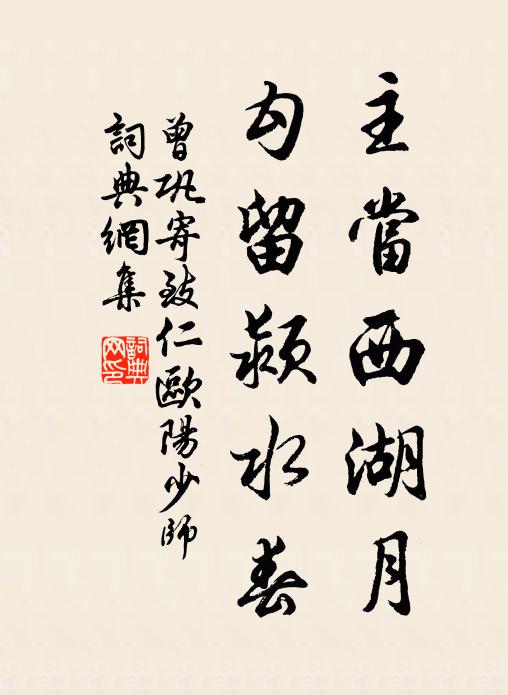 主當西湖月
勾留潁水春
曾巩寄致仁歐陽少師
詞典網集
詞典網印